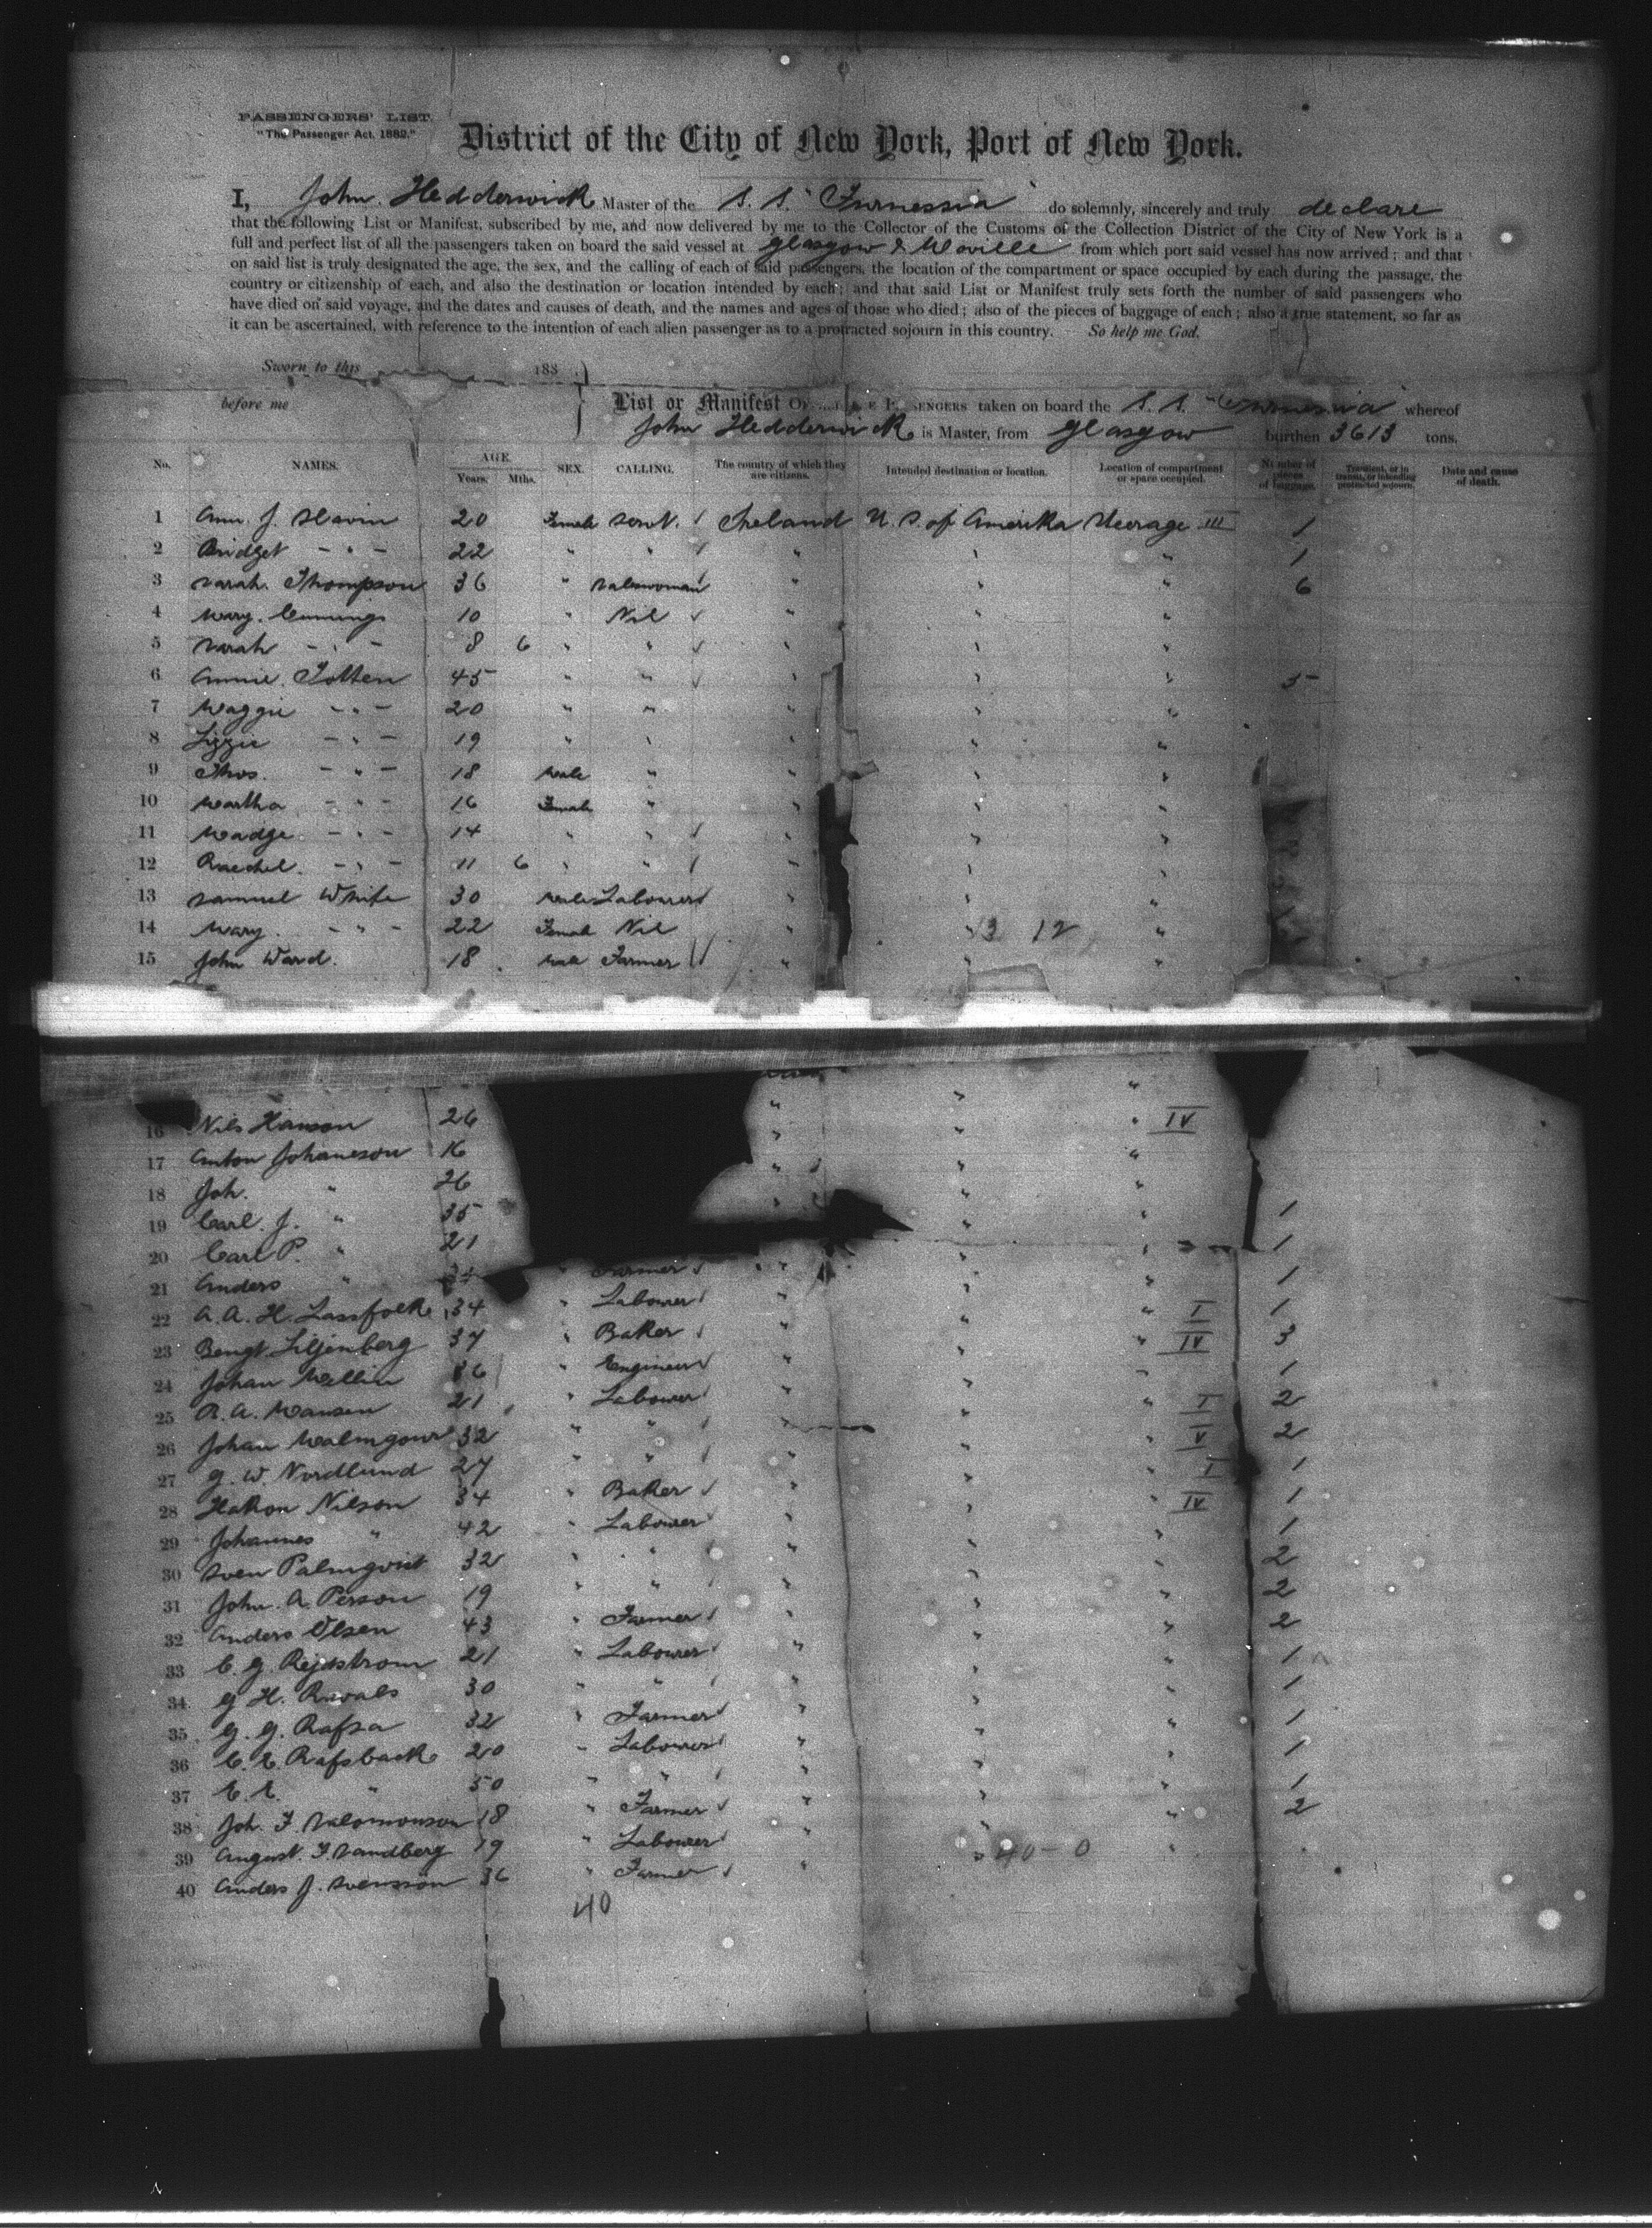 PASSENGERS' LIST.
"The Passenger Act, 1882."
District of the City of New York, Port of New York.
I, John Hedderwick Master of the S. S. "Furnessia" do solemnly, sincerely and truly declare
that the following List or Manifest, subscribed by me, and now delivered by me to the Collector of the Customs of the Collection District of the City of New York is a
full and perfect list of all the passengers taken on board the said vessel at Glasgow & Moville from which port said vessel has now arrived; and that
on said list is truly designated the age, the sex, and the calling of each of said passengers, the location of the compartment or space occupied by each during the passage, the
country or citizenship of each, and also the destination or location intended by each; and that said List or Manifest truly sets forth the number of said passengers who
have died on said voyage, and the dates and causes of death, and the names and ages of those who died; also of the pieces of baggage of each; also a true statement, so far as
it can be ascertained, with reference to the intention of each alien passenger as to a protracted sojourn in this country. So help me God.
Sworn to this 188
before me
List or Manifest OF taken on board the S. S. "Furnessia" whereof
John Hedderwick is Master, from Glasgow burthen 3613 tons.
No. NAMES. AGE. Years. Mths. SEX. CALLING. The country of which they are citizens. Intended destination or location. Location of compartment or space occupied. Number of pieces of baggage. Transient, or in transit, or intending protracted sojourn. Date and cause of death.
1 Ann J. Slavin 20 Female Servt. Ireland U. S. of Amerika Steerage III 1
2 Bridget - " - 22 " " " " " 1
3 Sarah Thompson 36 " Saleswoman " " " 6
4 Mary Cummings 10 " Nil " " "
5 Sarah - " - 8 6 " " " " "
6 Annie Totten 45 " " " " " 5
7 Maggie - " - 20 " " " " "
8 Lizzie - " - 19 " " " " "
9 Thos. - " - 18 Male " " " "
10 Martha - " - 16 Female " " " "
11 Madge - " - 14 " " " " "
12 Raechel - " - 11 6 " " " " "
13 Samuel White 30 Male Labourer " " "
14 Mary - " - 22 Female Nil " 3 12 "
15 John Ward. 18 Male Farmer " " "
16 Nils Hanson 26 " " " IV
17 Anton Johaneson 16 " " "
18 Joh. " 26 " " "
19 Carl J. " 35 " " 1
20 Carl P. " 21 " " 1
21 Anders " " Farmer " " " 1
22 A. A. H. Lassfolk 34 " Labourer " " " I 1
23 Bengt Liljenberg 37 " Baker " " " IV 3
24 Johan Mellin " Engineer " " " 1
25 R. A. 21 " Labourer " " " I 2
26 Johan 32 " " " " " V 2
27 G. W. Nordlund 27 " " " " " I 1
28 Hakon Nilson 34 " Baker " " " IV 1
29 Johannes " 42 " Labourer " " " 1
30 Sven Palmqvist 32 " " " " " 2
31 John A. Person 19 " " " " " 2
32 Anders Olsen 43 " Farmer " " " 2
33 C. G. 21 " Labourer " " " 1
34 G. H. 30 " " " " " 1
35 G. G. Rafsa 32 " Farmer " " " 1
36 C. E. Rafsback 20 " Labourer " " " 1
37 C. E. " 50 " " " " " 1
38 Joh. F. Salomonson 18 " Farmer " " " 2
39 August F. Sandberg 19 " Labourer " 40-0 "
40 Anders J. Svensson 36 " Farmer "
40